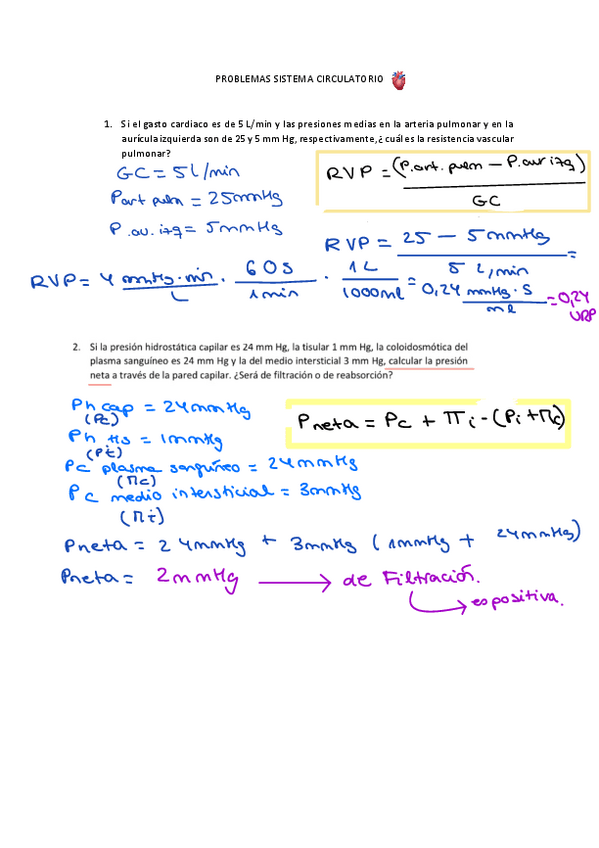 PROBLEMAS SISTEMA CIRCULATORIO
1. Si el gasto cardiaco es de 5 L/min y las presiones medias en la arteria pulmonar y en la
aurícula izquierda son de 25 y 5 mm Hg, respectivamente,¿ cuál es la resistencia vascular
pulmonar?
GC = 5 L/min
P art pulm = 25 mmHg
P. au. izq = 5 mmHg
RVP = (P.art. pulm - P.aur izq)
GC
RVP = 25 - 5 mmHg =
5 L/min
RVP = 4 mmHg·min / L · 60 s / 1 min · 1 L / 1000 ml = 0,24 mmHg·s / ml = 0,24 URP
2. Si la presión hidrostática capilar es 24 mm Hg, la tisular 1 mm Hg, la coloidosmótica del
plasma sanguíneo es 24 mm Hg y la del medio intersticial 3 mm Hg, calcular la presión
neta a través de la pared capilar. ¿Será de filtración o de reabsorción?
Ph cap = 24 mmHg
(Pc)
Ph tis = 1 mmHg
(Pi)
Pc plasma sanguíneo = 24 mmHg
(πc)
Pc medio intersticial = 3 mmHg
(πi)
Pneta = Pc + πi - (Pi + πc)
Pneta = 24 mmHg + 3 mmHg (1 mmHg + 24 mmHg)
Pneta = 2 mmHg → de Filtración.
→ es positiva.